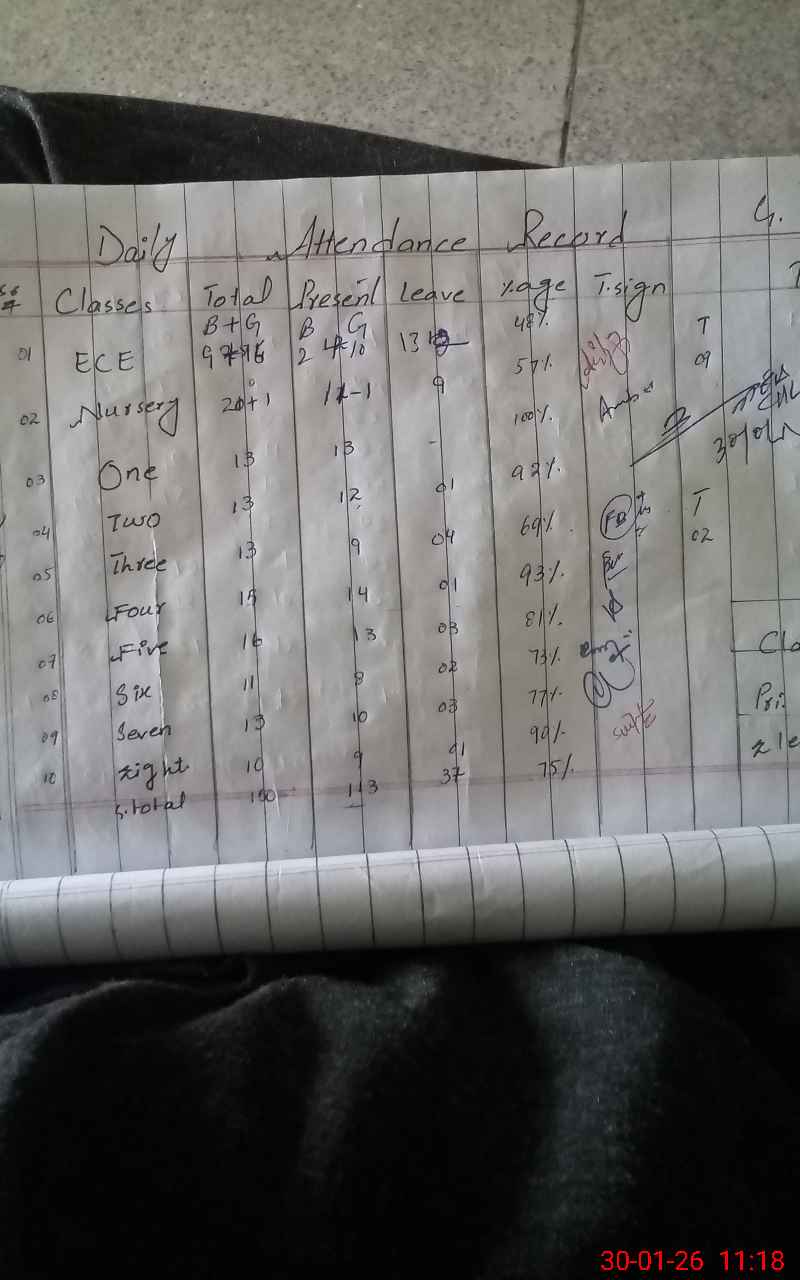 G.
Daily Attendance Record
S# Classes Total Present Leave %age T.sign
B+G B G
01 ECE 9 16 2 10 13 48% T
02 Nursery 20+1 11-1 9 57% 09
03 One 13 13 - 100%
04 Two 13 12 01 92% T
05 Three 13 9 04 69% 02
06 Four 15 14 01 93%
07 Five 16 13 03 81%
08 Six 11 8 02 73%
09 Seven 13 10 03 77%
10 Eight 10 9 01 90%
S.total 150 113 37 75%
Cla
Pri
Ele
30-01-26 11:18